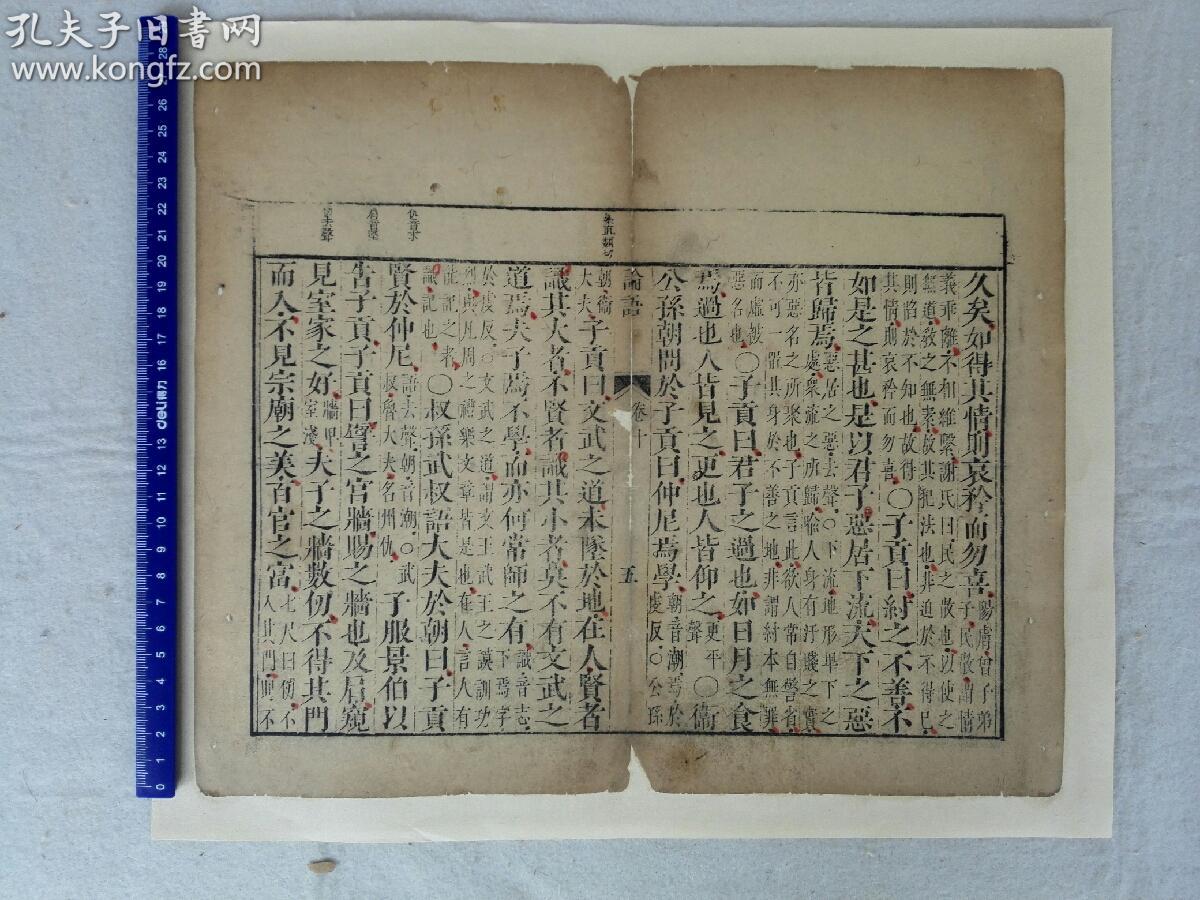 孔夫子旧書网
www.kongfz.com
deli得力
久矣如得其情則哀矜而勿喜陽膚曾子弟子民散謂情
義乖離不相維繫謝氏曰民之散也以使之
無道敎之無素故其犯法也非迫於不得已
則陷於不知也故得其情則哀矜而勿喜〇子貢曰紂之不善不
如是之甚也是以君子惡居下流天下之惡
皆歸焉惡居之惡去聲〇下流地形卑下之處衆流之所歸喻人身有汙賤之實
亦惡名之所聚也子貢言此欲人常自警省
不可一置其身於不善之地非謂紂本無罪
而虛被惡名也〇子貢曰君子之過也如日月之食
焉過也人皆見之更也人皆仰之更平聲〇衛
公孫朝問於子貢曰仲尼焉學朝音潮焉於虔反〇公孫
論語 卷十 五
朝衛大夫子貢曰文武之道未墜於地在人賢者
識其大者不賢者識其小者莫不有文武之
道焉夫子焉不學而亦何常師之有識音志下焉字
於虔反〇文武之道謂文王武王之謨訓功
烈與凡周之禮樂文章皆是也在人言人有
能記之者識記也〇叔孫武叔語大夫於朝曰子貢
賢於仲尼語去聲朝音潮〇武叔魯大夫名州仇子服景伯以
告子貢子貢曰譬之宮牆賜之牆也及肩窺
見室家之好牆卑室淺夫子之牆數仞不得其門
而入不見宗廟之美百官之富七尺曰仞不入其門則不